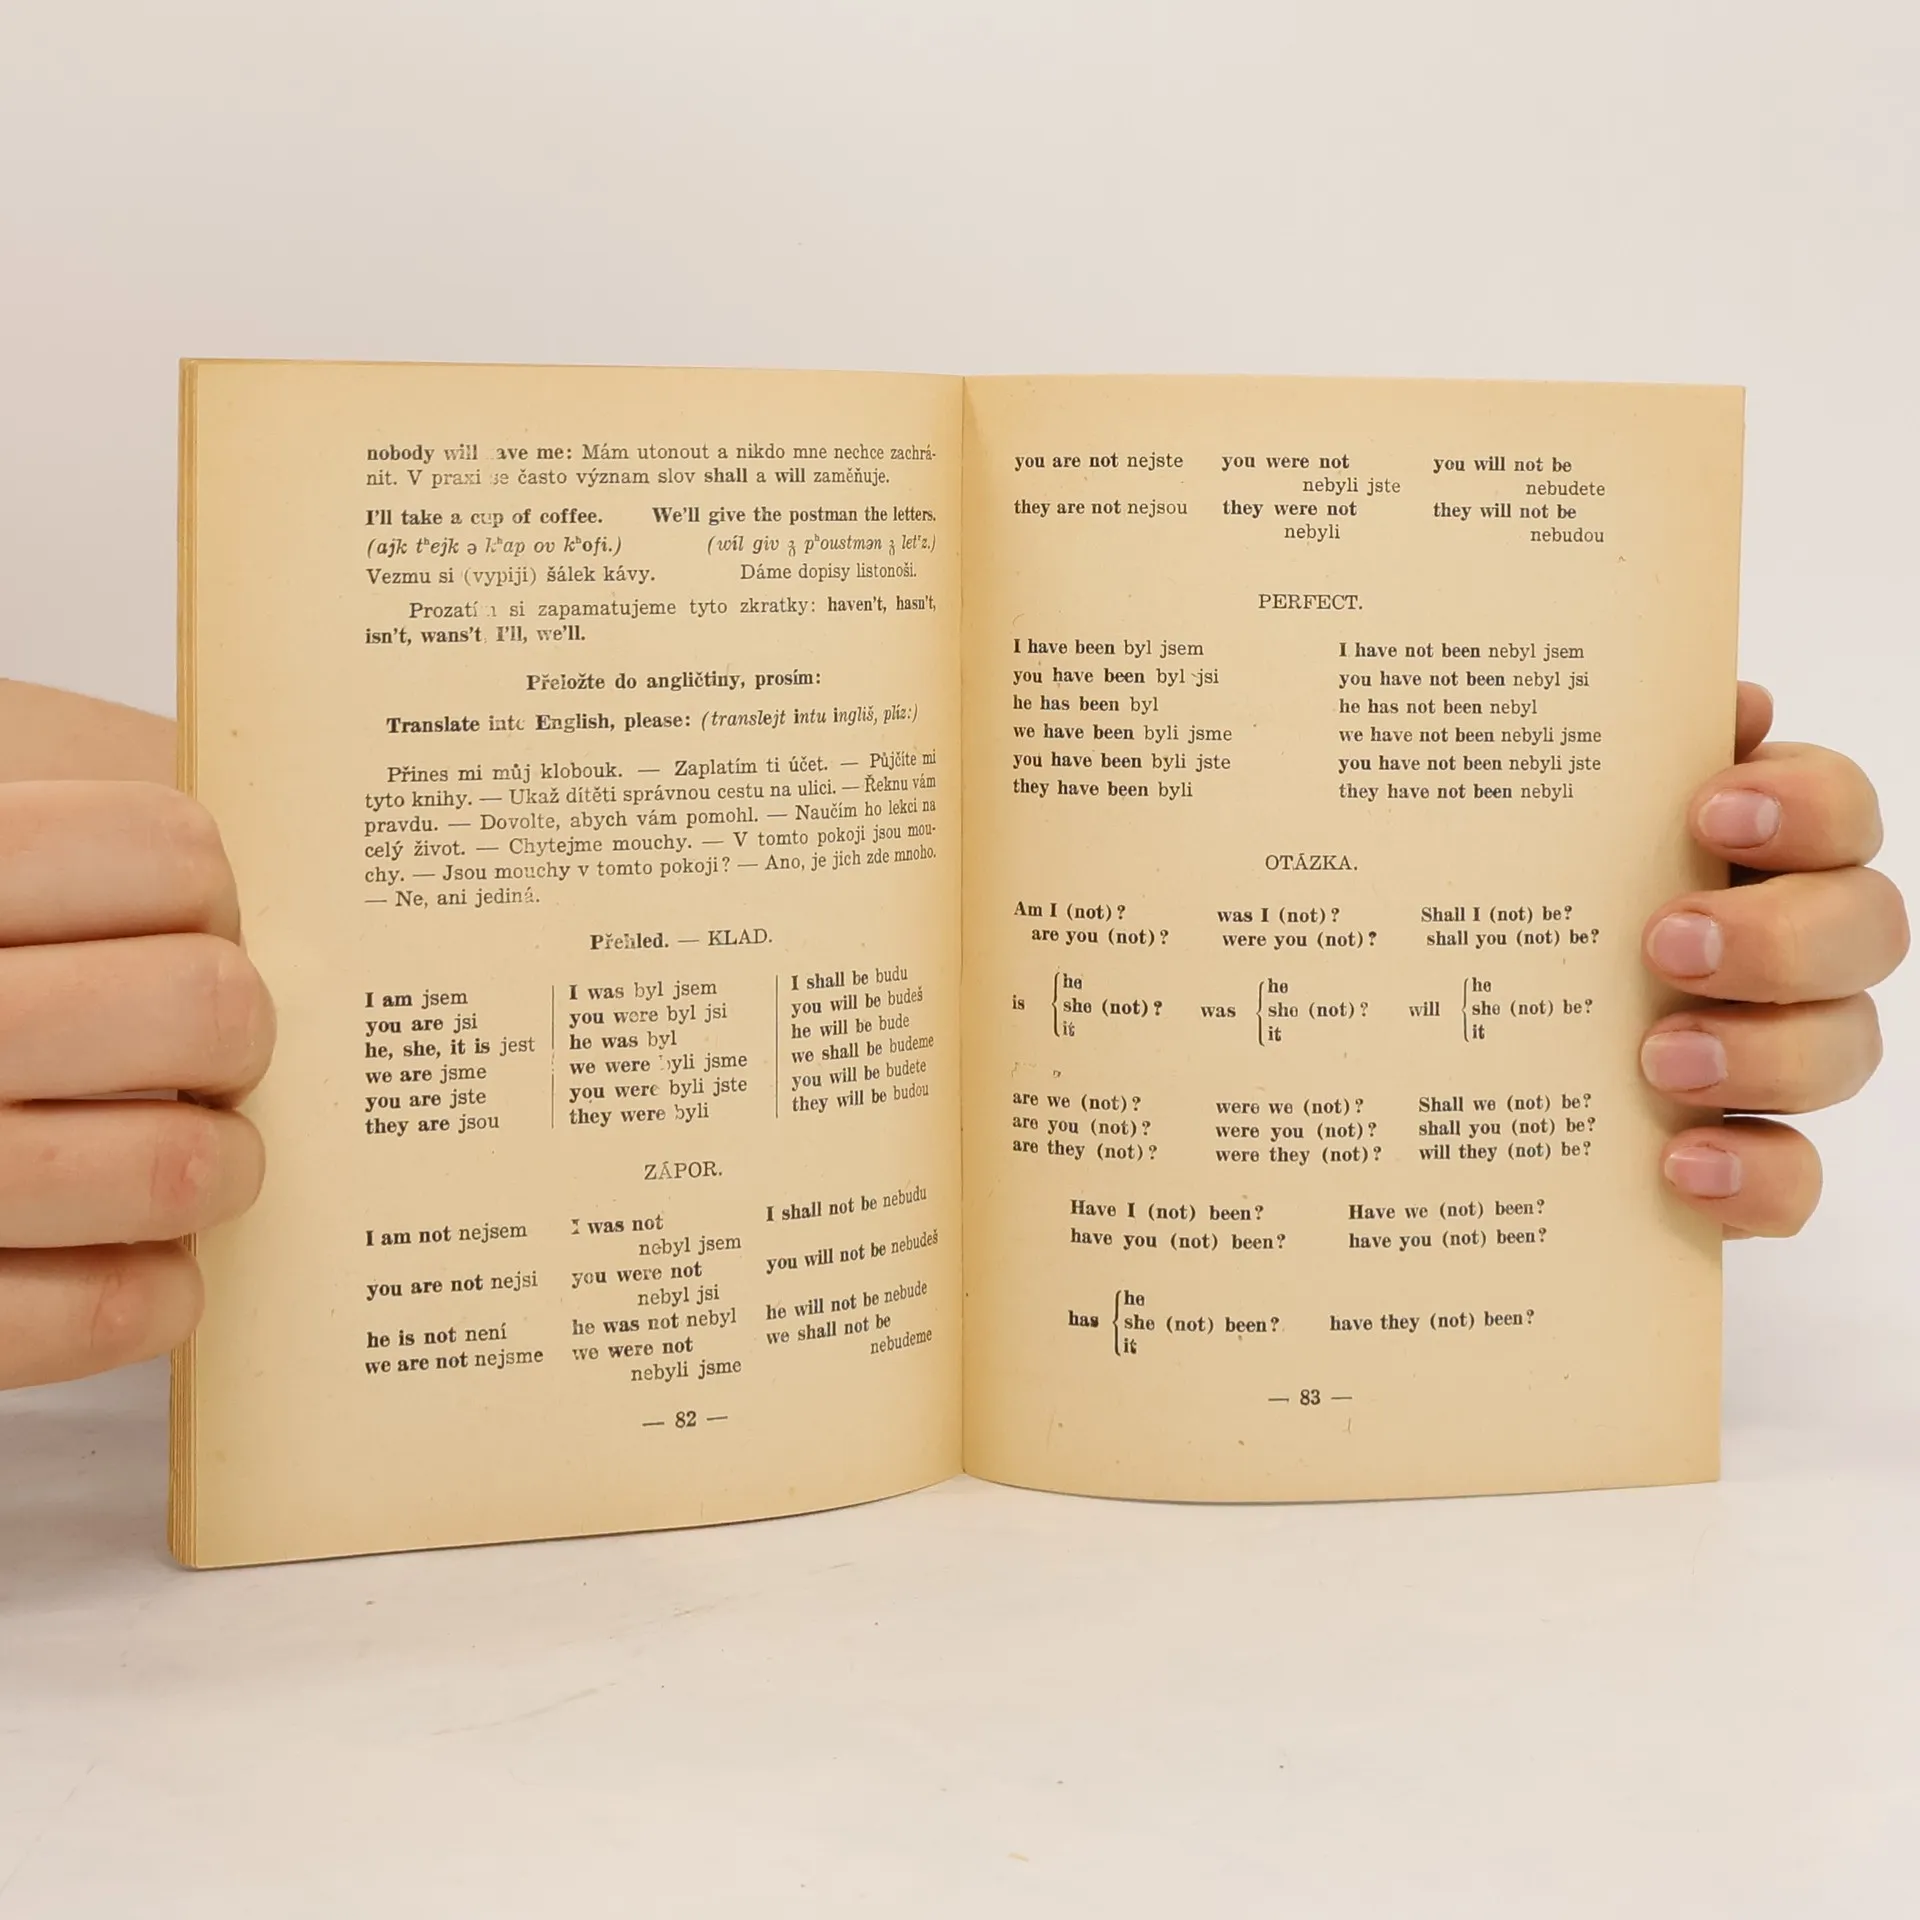 nobody will ave me: Mám utonout a nikdo mne nechce zachrá-
nit. V praxi se často význam slov shall a will zaměňuje.
I'll take a cup of coffee. We'll give the postman the letters.
(ajk tʰejk ə kʰap ov kʰofi.) (wíl giv ʒ pʰoustmən ʒ letʳz.)
Vezmu si (vypiji) šálek kávy. Dáme dopisy listonoši.
Prozatím si zapamatujeme tyto zkratky: haven't, hasn't,
isn't, wans't, I'll, we'll.
Přeložte do angličtiny, prosím:
Translate into English, please: (translejt intu ingliš, plíz:)
Přines mi můj klobouk. — Zaplatím ti účet. — Půjčíte mi
tyto knihy. — Ukaž dítěti správnou cestu na ulici. — Řeknu vám
pravdu. — Dovolte, abych vám pomohl. — Naučím ho lekci na
celý život. — Chytejme mouchy. — V tomto pokoji jsou mou-
chy. — Jsou mouchy v tomto pokoji? — Ano, je jich zde mnoho.
— Ne, ani jediná.
Přehled. — KLAD.
I am jsem I was byl jsem I shall be budu
you are jsi you were byl jsi you will be budeš
he, she, it is jest he was byl he will be bude
we are jsme we were byli jsme we shall be budeme
you are jste you were byli jste you will be budete
they are jsou they were byli they will be budou
ZÁPOR.
I am not nejsem I was not I shall not be nebudu
nebyl jsem
you are not nejsi you were not you will not be nebudeš
nebyl jsi
he is not není he was not nebyl he will not be nebude
we are not nejsme we were not we shall not be
nebyli jsme nebudeme
— 82 —
you are not nejste you were not you will not be
nebyli jste nebudete
they are not nejsou they were not they will not be
nebyli nebudou
PERFECT.
I have been byl jsem I have not been nebyl jsem
you have been byl jsi you have not been nebyl jsi
he has been byl he has not been nebyl
we have been byli jsme we have not been nebyli jsme
you have been byli jste you have not been nebyli jste
they have been byli they have not been nebyli
OTÁZKA.
Am I (not)? was I (not)? Shall I (not) be?
are you (not)? were you (not)? shall you (not) be?
he he he
is she (not)? was she (not)? will she (not) be?
it it it
are we (not)? were we (not)? Shall we (not) be?
are you (not)? were you (not)? shall you (not) be?
are they (not)? were they (not)? will they (not) be?
Have I (not) been? Have we (not) been?
have you (not) been? have you (not) been?
he
has she (not) been? have they (not) been?
it
— 83 —